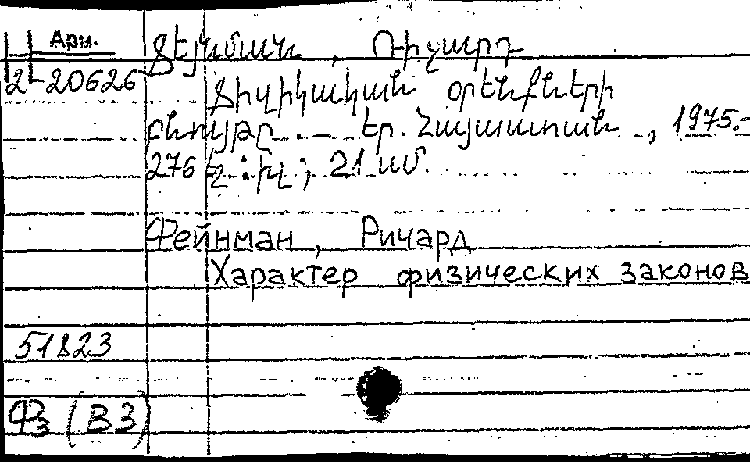 Арм.
Ֆեյնման, Ռիչարդ
Ц2-20626
Ֆիզիկական օրենքների
բնույթը. — Եր. Հայաստան, 1975.-
276 էջ : իլ ; 21 սմ.
Фейнман, Ричард
Характер физических законов
51823
Фз (В3)